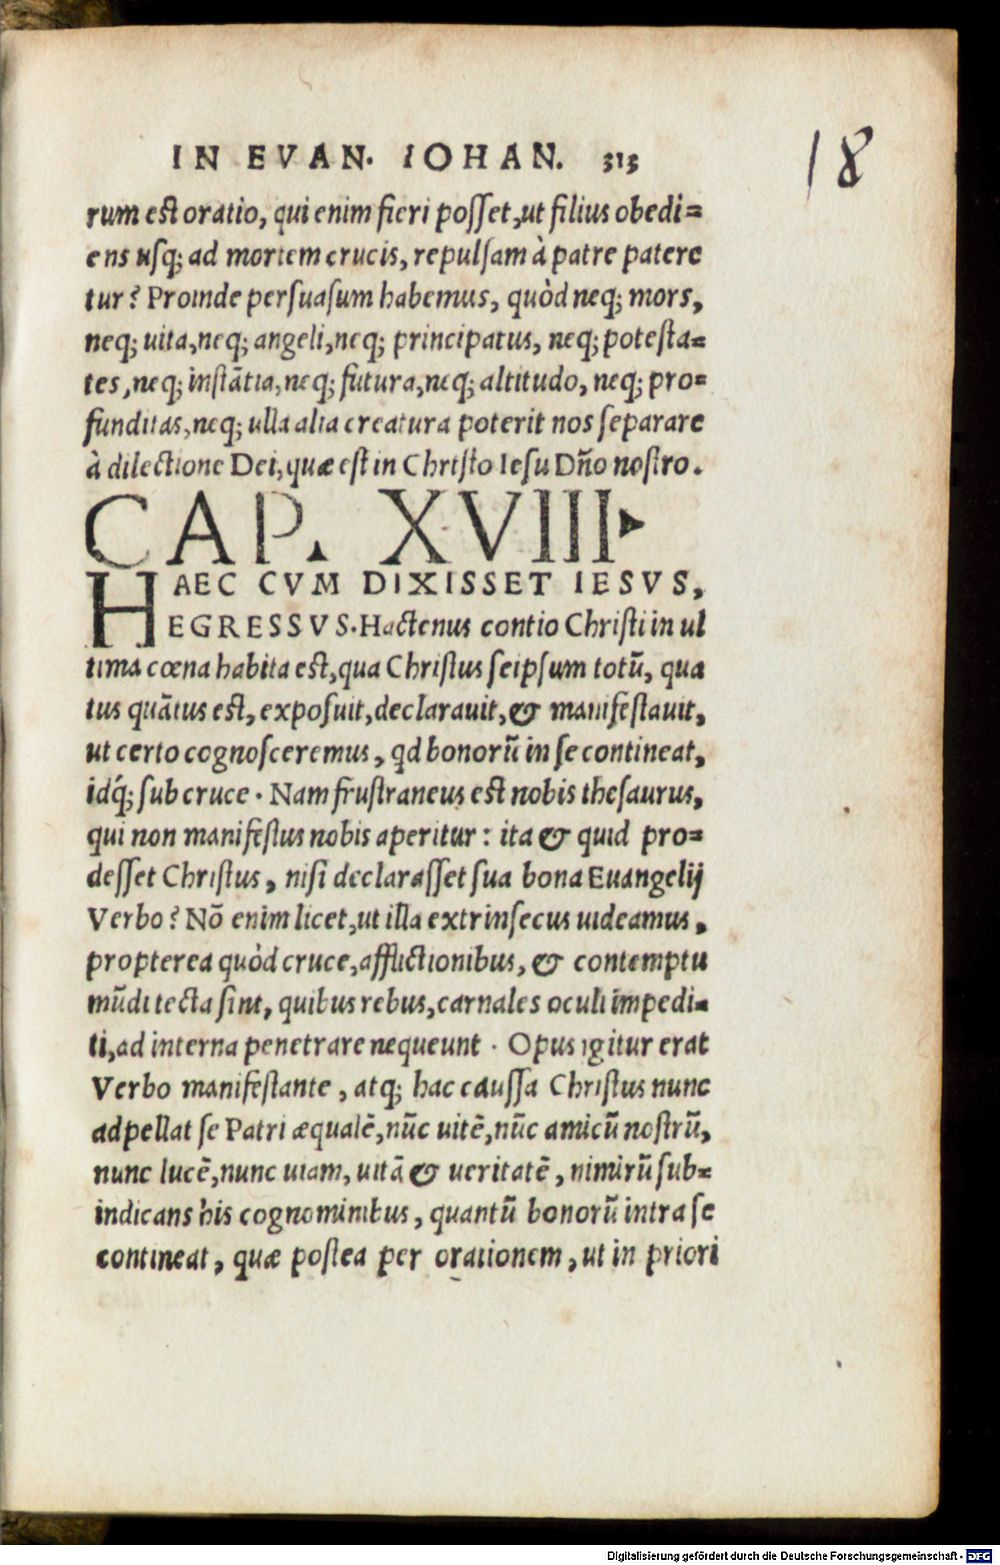 IN EVAN. IOHAN. 313
18
rum est oratio, qui enim fieri posset, ut filius obedi=
ens usq; ad mortem crucis, repulsam à patre patere
tur? Proinde persuasum habemus, quòd neq; mors,
neq; uita, neq; angeli, neq; principatus, neq; potesta=
tes, neq; instātia, neq; futura, neq; altitudo, neq; pro=
funditas, neq; ulla alia creatura poterit nos separare
à dilectione Dei, quæ est in Christo Iesu Dño nostro.
CAP. XVIII
HAEC CVM DIXISSET IESVS,
EGRESSVS. Hactenus contio Christi in ul
tima cœna habita est, qua Christus seipsum totū, qua
tus quātus est, exposuit, declarauit, & manifestauit,
ut certo cognosceremus, qd bonorū in se contineat,
idq́; sub cruce. Nam frustraneus est nobis thesaurus,
qui non manifestus nobis aperitur: ita & quid pro=
desset Christus, nisi declarasset sua bona Euangelij
Verbo? Nō enim licet, ut illa extrinsecus uideamus,
propterea quòd cruce, afflictionibus, & contemptu
mūdi tecta sint, quibus rebus, carnales oculi impedi=
ti, ad interna penetrare nequeunt. Opus igitur erat
Verbo manifestante, atq; hac caussa Christus nunc
adpellat se Patri æqualē, nūc uitē, nūc amicū nostrū,
nunc lucē, nunc uiam, uitā & ueritatē, nimirū sub=
indicans his cognominibus, quantū bonorū intra se
contineat, quæ postea per orationem, ut in priori
Digitalisierung gefördert durch die Deutsche Forschungsgemeinschaft - DFG